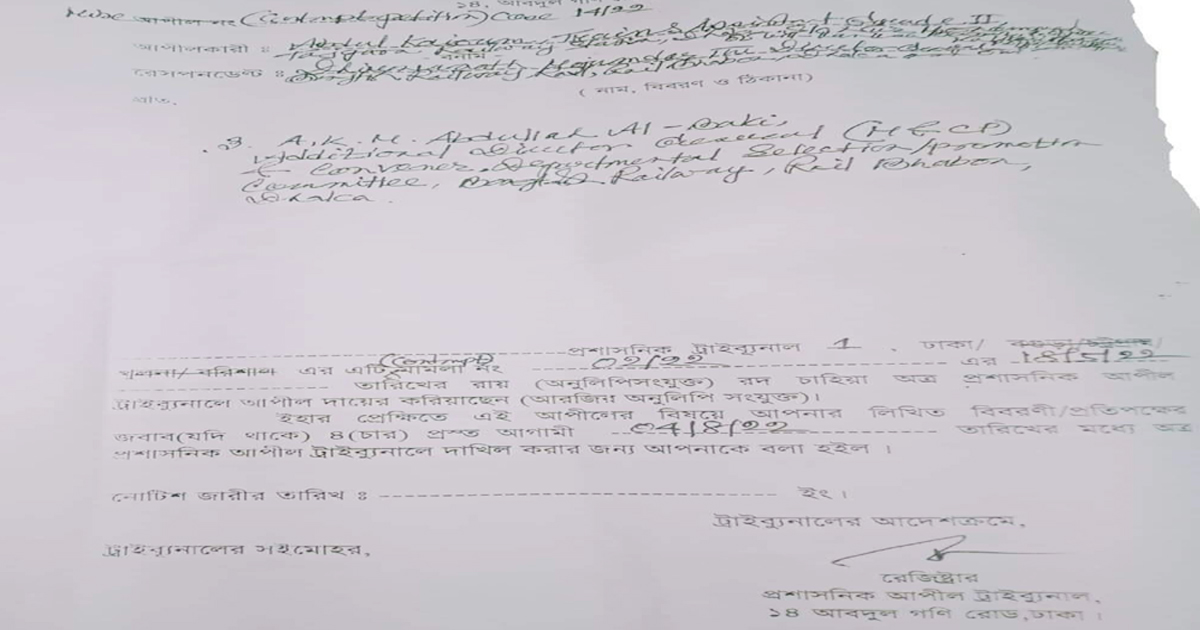 ১৪, আবদুল গণি
আপীল নং (Contempt petition) Case 14/22
আপীলকারী : Abdul Kaium, Grade II
-বনাম-
রেসপনডেন্ট : Majumder, Director
Railway, Rail Bhaban, Dhaka
( নাম, বিবরণ ও ঠিকানা)
প্রতি,
3. A.K.M. Abdullah Al-Baki,
Additional Director General (M&CP)
& Convener, Departmental Selection/promotion
Committee, Railway, Rail Bhaban,
Dhaka.
প্রশাসনিক ট্রাইব্যুনাল 1 , ঢাকা/ বগুড়া/
খুলনা/ বরিশাল এর এটি/মামলা নং (Contempt) 02/22 এর 18/5/22
তারিখের রায় (অনুলিপিসংযুক্ত) রদ চাহিয়া অত্র প্রশাসনিক আপীল
ট্রাইব্যুনালে আপীল দায়ের করিয়াছেন (আরজির অনুলিপি সংযুক্ত)।
ইহার প্রেক্ষিতে এই আপীলের বিষয়ে আপনার লিখিত বিবরণী/প্রতিপক্ষের
জবাব(যদি থাকে) ৪(চার) প্রস্ত আগামী 04/8/22 তারিখের মধ্যে অত্র
প্রশাসনিক আপীল ট্রাইব্যুনালে দাখিল করার জন্য আপনাকে বলা হইল ।
নোটিশ জারীর তারিখ : ইং।
ট্রাইব্যুনালের আদেশক্রমে,
ট্রাইব্যুনালের সইমোহর,
রেজিষ্ট্রার
প্রশাসনিক আপীল ট্রাইব্যুনাল,
১৪ আবদুল গণি রোড,ঢাকা ।